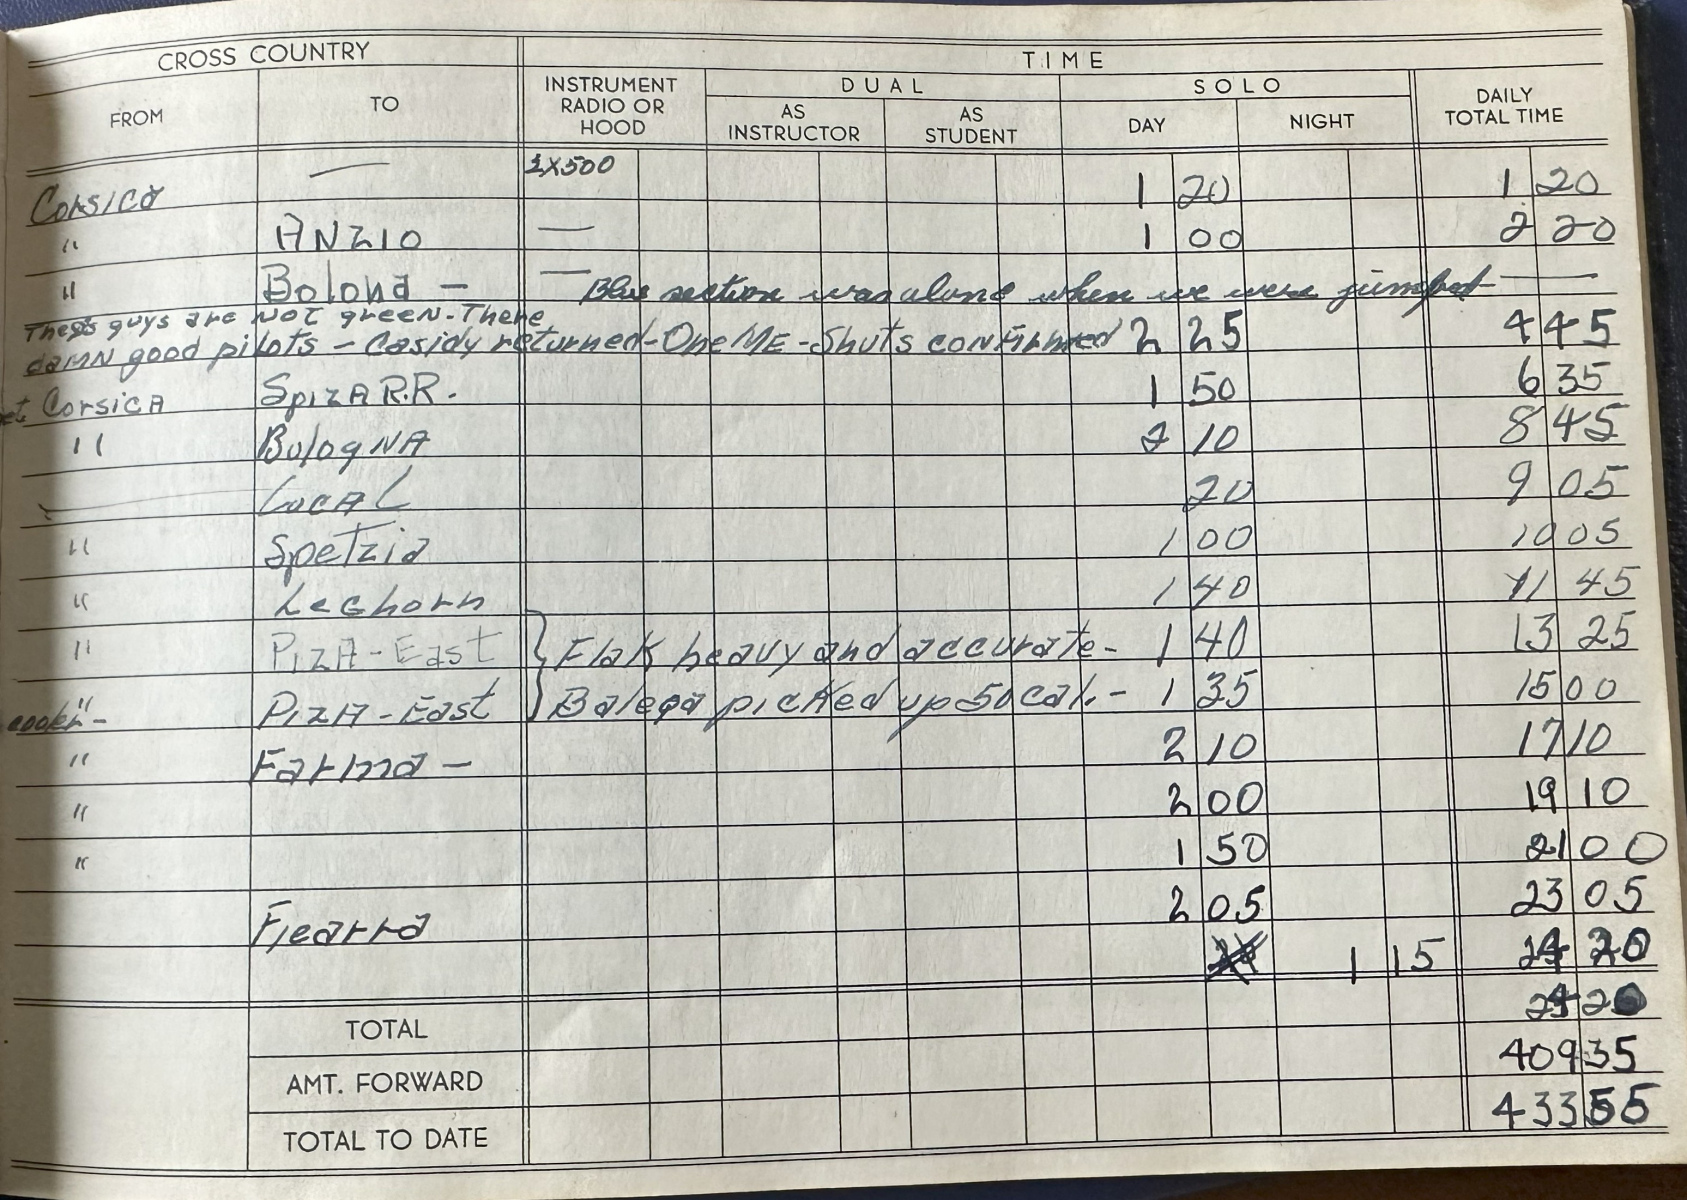 CROSS COUNTRY TIME
FROM TO INSTRUMENT RADIO OR HOOD DUAL SOLO DAILY TOTAL TIME
AS INSTRUCTOR AS STUDENT DAY NIGHT
Corsica — 2X500 1 20 1 20
" ANZIO — 1 00 2 20
" Bolona - — Blue section was alone when we were jumped —
These guys are NOT green - There
damn good pilots - Casidy returned - One ME - Shuts confirmed 2 25 4 45
Corsica Spiza R.R. 1 50 6 35
" Bologna 2 10 8 45
Local 20 9 05
" Spetzia 1 00 10 05
" Leghorn 1 40 11 45
" Piza - East } Flak heavy and accurate - 1 40 13 25
" Piza - East } Balega picked up 50 cal. - 1 35 15 00
" Farma - 2 10 17 10
" 2 00 19 10
" 1 50 21 00
Fiearra 2 05 23 05
1 15 24 20
TOTAL 24 20
AMT. FORWARD 409 35
TOTAL TO DATE 433 55